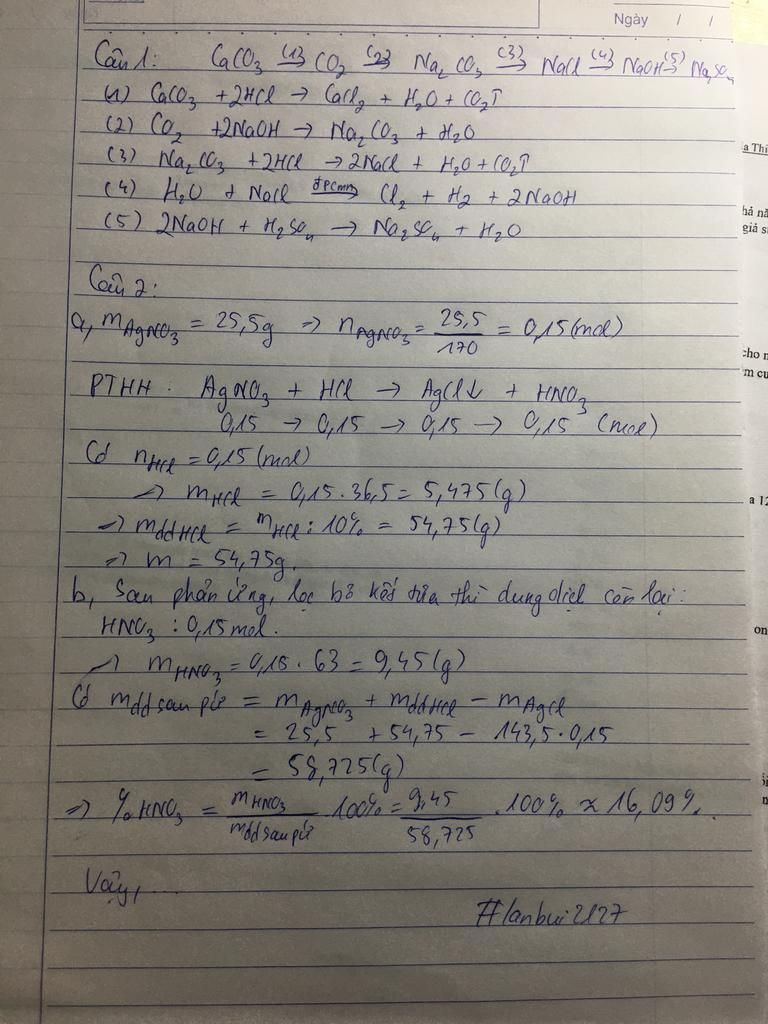 Ngày / /
Câu 1: CaCO3 (1)→ CO2 (2)→ Na2CO3 (3)→ NaCl (4)→ NaOH (5)→ Na2SO4
(1) CaCO3 + 2HCl → CaCl2 + H2O + CO2↑
(2) CO2 + 2NaOH → Na2CO3 + H2O
(3) Na2CO3 + 2HCl → 2NaCl + H2O + CO2↑
(4) H2O + NaCl đpcmn→ Cl2 + H2 + 2NaOH
(5) 2NaOH + H2SO4 → Na2SO4 + H2O
Câu 2:
a, mAgNO3 = 25,5g => nAgNO3 = 25,5/170 = 0,15(mol)
PTHH: AgNO3 + HCl → AgCl↓ + HNO3
0,15 → 0,15 → 0,15 → 0,15 (mol)
Có nHCl = 0,15 (mol)
=> mHCl = 0,15 . 36,5 = 5,475(g)
=> mddHCl = mHCl : 10% = 54,75(g)
=> m = 54,75g.
b, Sau phản ứng, lọc bỏ kết tủa thì dung dịch còn lại:
HNO3 : 0,15 mol.
=> mHNO3 = 0,15 . 63 = 9,45(g)
Có mdd sau pứ = mAgNO3 + mddHCl - mAgCl
= 25,5 + 54,75 - 143,5 . 0,15
= 58,725(g)
=> %HNO3 = mHNO3/mdd sau pứ . 100% = 9,45/58,725 . 100% ≈ 16,09%.
Vậy, ...
#lanbui2127
a Thi
giả s
cho n
m cu
a 12
on